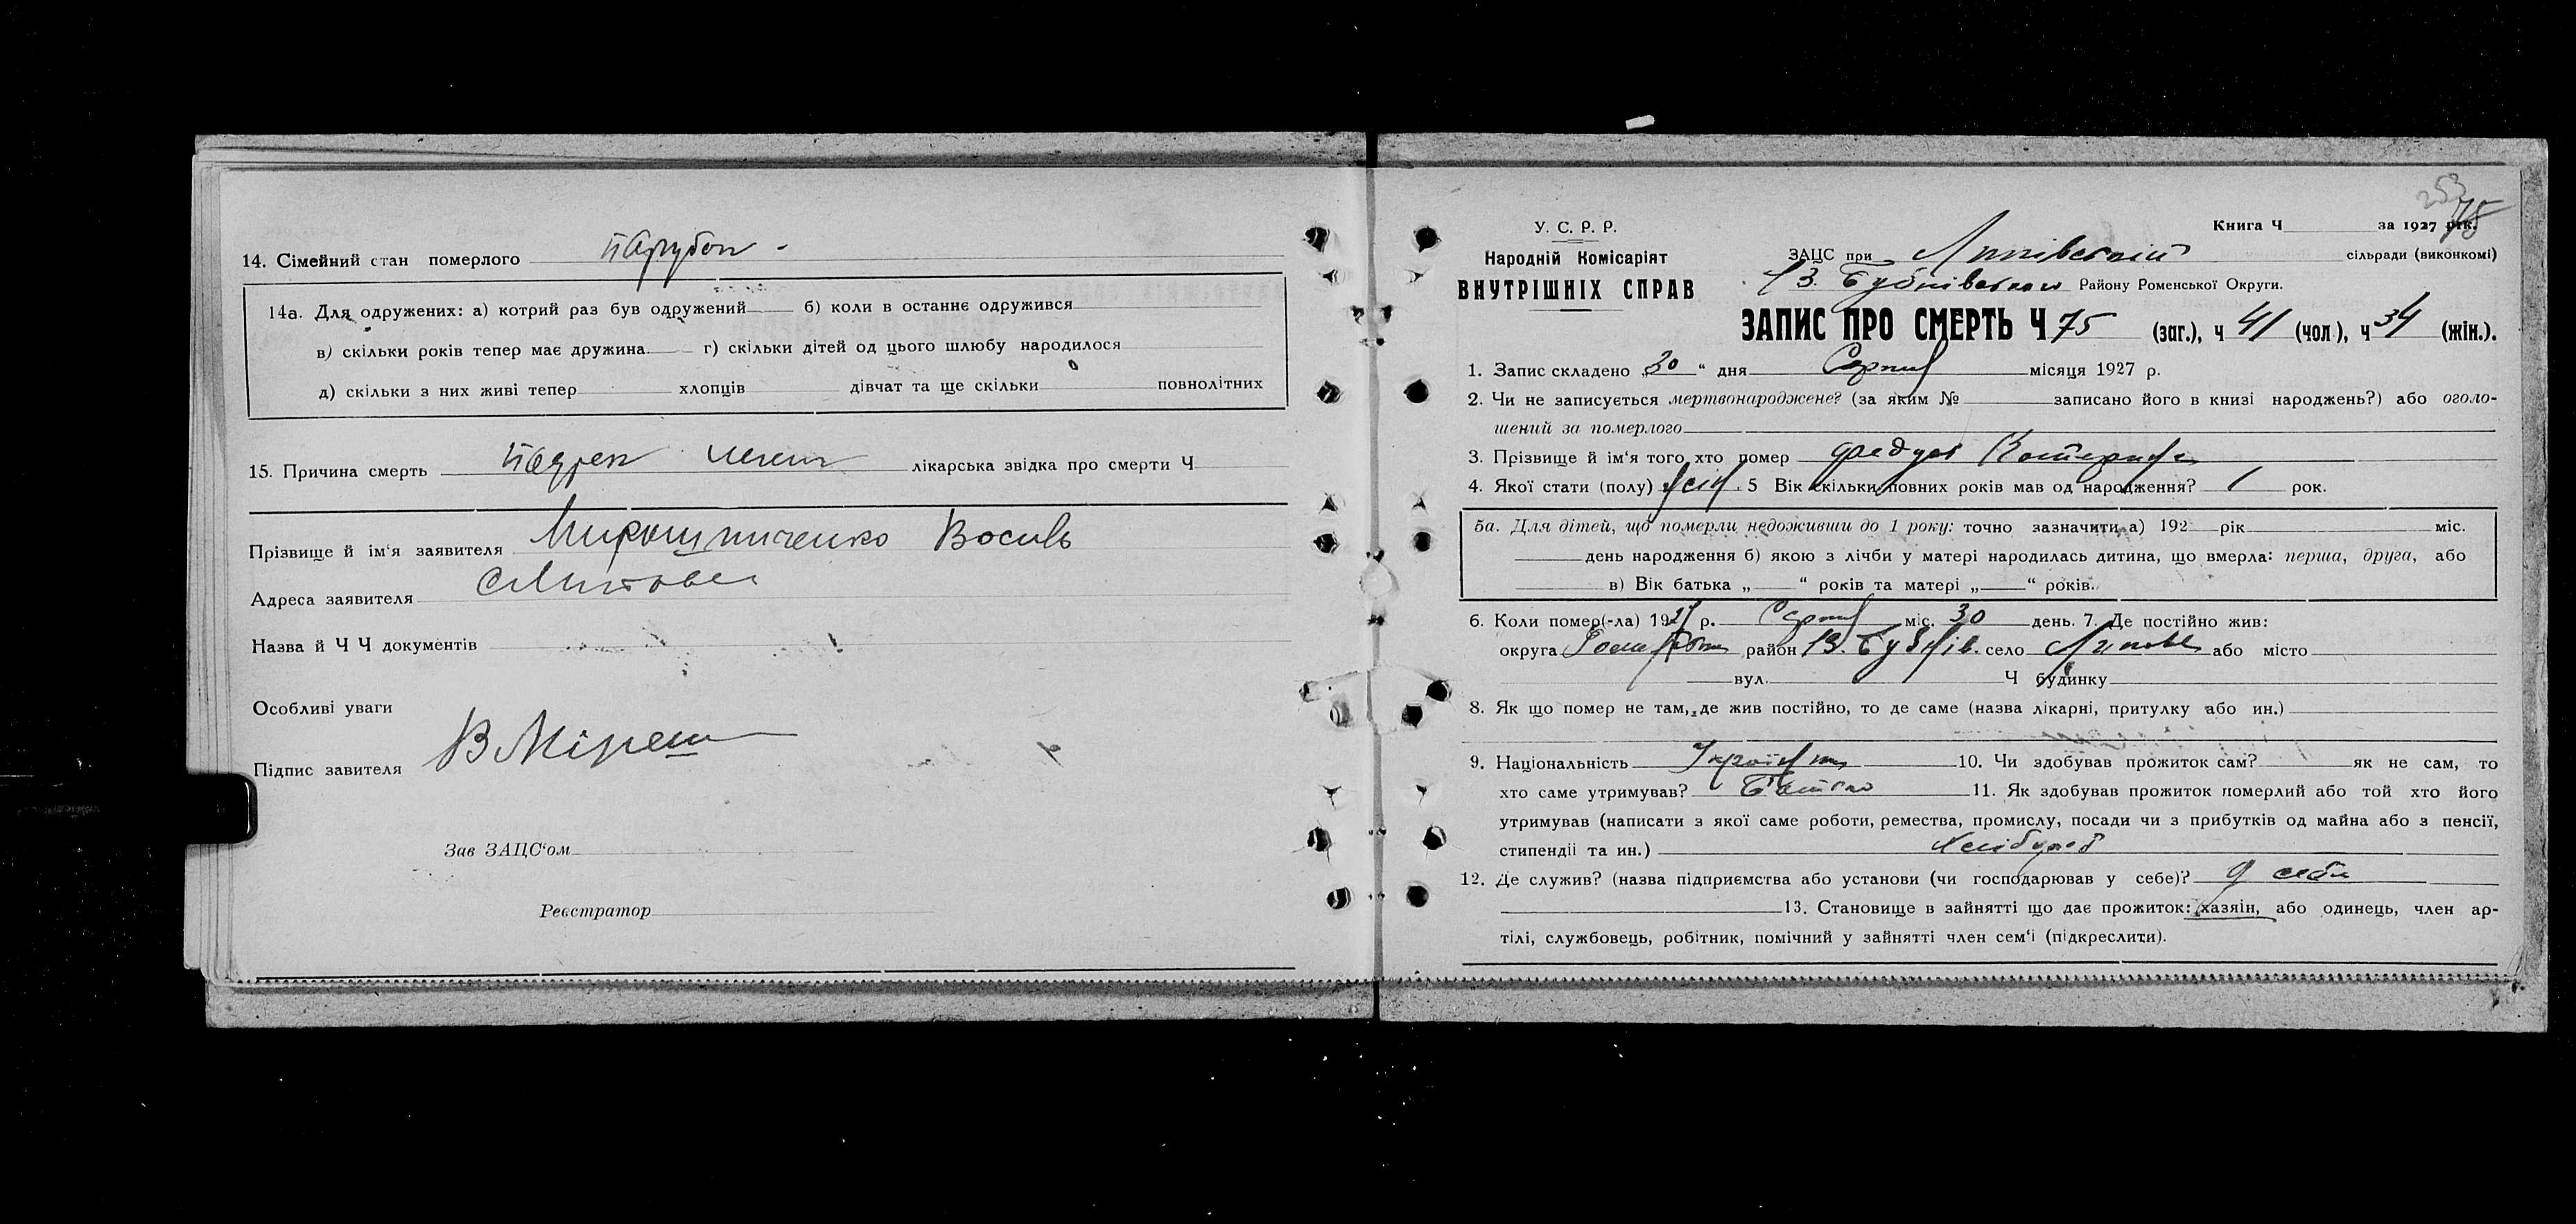 14. Сімейний стан померлого парубок -
14а. Для одружених: а) котрий раз був одружений б) коли в останнє одружився
в) скільки років тепер має дружина г) скільки дітей од цього шлюбу народилося
д) скільки з них живі тепер хлопців дівчат та ще скільки повнолітних
15. Причина смерть лікарська звідка про смерти Ч
Прізвище й ім'я заявителя Мирошниченко Василь
Адреса заявителя
Назва й Ч Ч документів
Особливі уваги
Підпис завителя
Зав ЗАЦС'ом
Реєстратор
253
75
У. С. Р. Р.
Книга Ч за 1927 рік.
Народній Комісаріят
ВНУТРІШНІХ СПРАВ
ЗАЦС при Липівській сільради (виконкомі)
Району Роменської Округи.
ЗАПИС ПРО СМЕРТЬ Ч 75 (заг.), ч 41 (чол), ч 34 (жін.).
1. Запис складено 30 “ дня Серпня місяця 1927 р.
2. Чи не записується мертвонароджене? (за яким № записано його в книзі народжень?) або оголо-
шений за померлого
3. Прізвище й ім'я того, хто помер Катерина
4. Якої стати (полу) жін. 5 Вік скільки повних років мав од народження? 1 рок.
5а. Для дітей, що померли недоживши до 1 року: точно зазначити а) 192 рік міс.
день народження б) якою з лічби у матері народилась дитина, що вмерла: перша, друга, або
в) Вік батька „ “ років та матері „ “ років.
6. Коли помер(-ла) 1927 р. Серпня міс. 30 день. 7. Де постійно жив:
округа район село або місто
вул. Ч будинку
8. Як що помер не там, де жив постійно, то де саме (назва лікарні, притулку або ин.)
9. Національність 10. Чи здобував прожиток сам? як не сам, то
хто саме утримував? Батько 11. Як здобував прожиток померлий або той хто його
утримував (написати з якої саме роботи, ремества, промислу, посади чи з прибутків од майна або з пенсії,
стипендії та ин.) Хлібороб
12. Де служив? (назва підприємства або установи (чи господарював у себе)? У себе
13. Становище в зайнятті що дає прожиток: хазяін, або одинець, член ар-
тілі, службовець, робітник, помічний у зайнятті член сем'і (підкреслити).